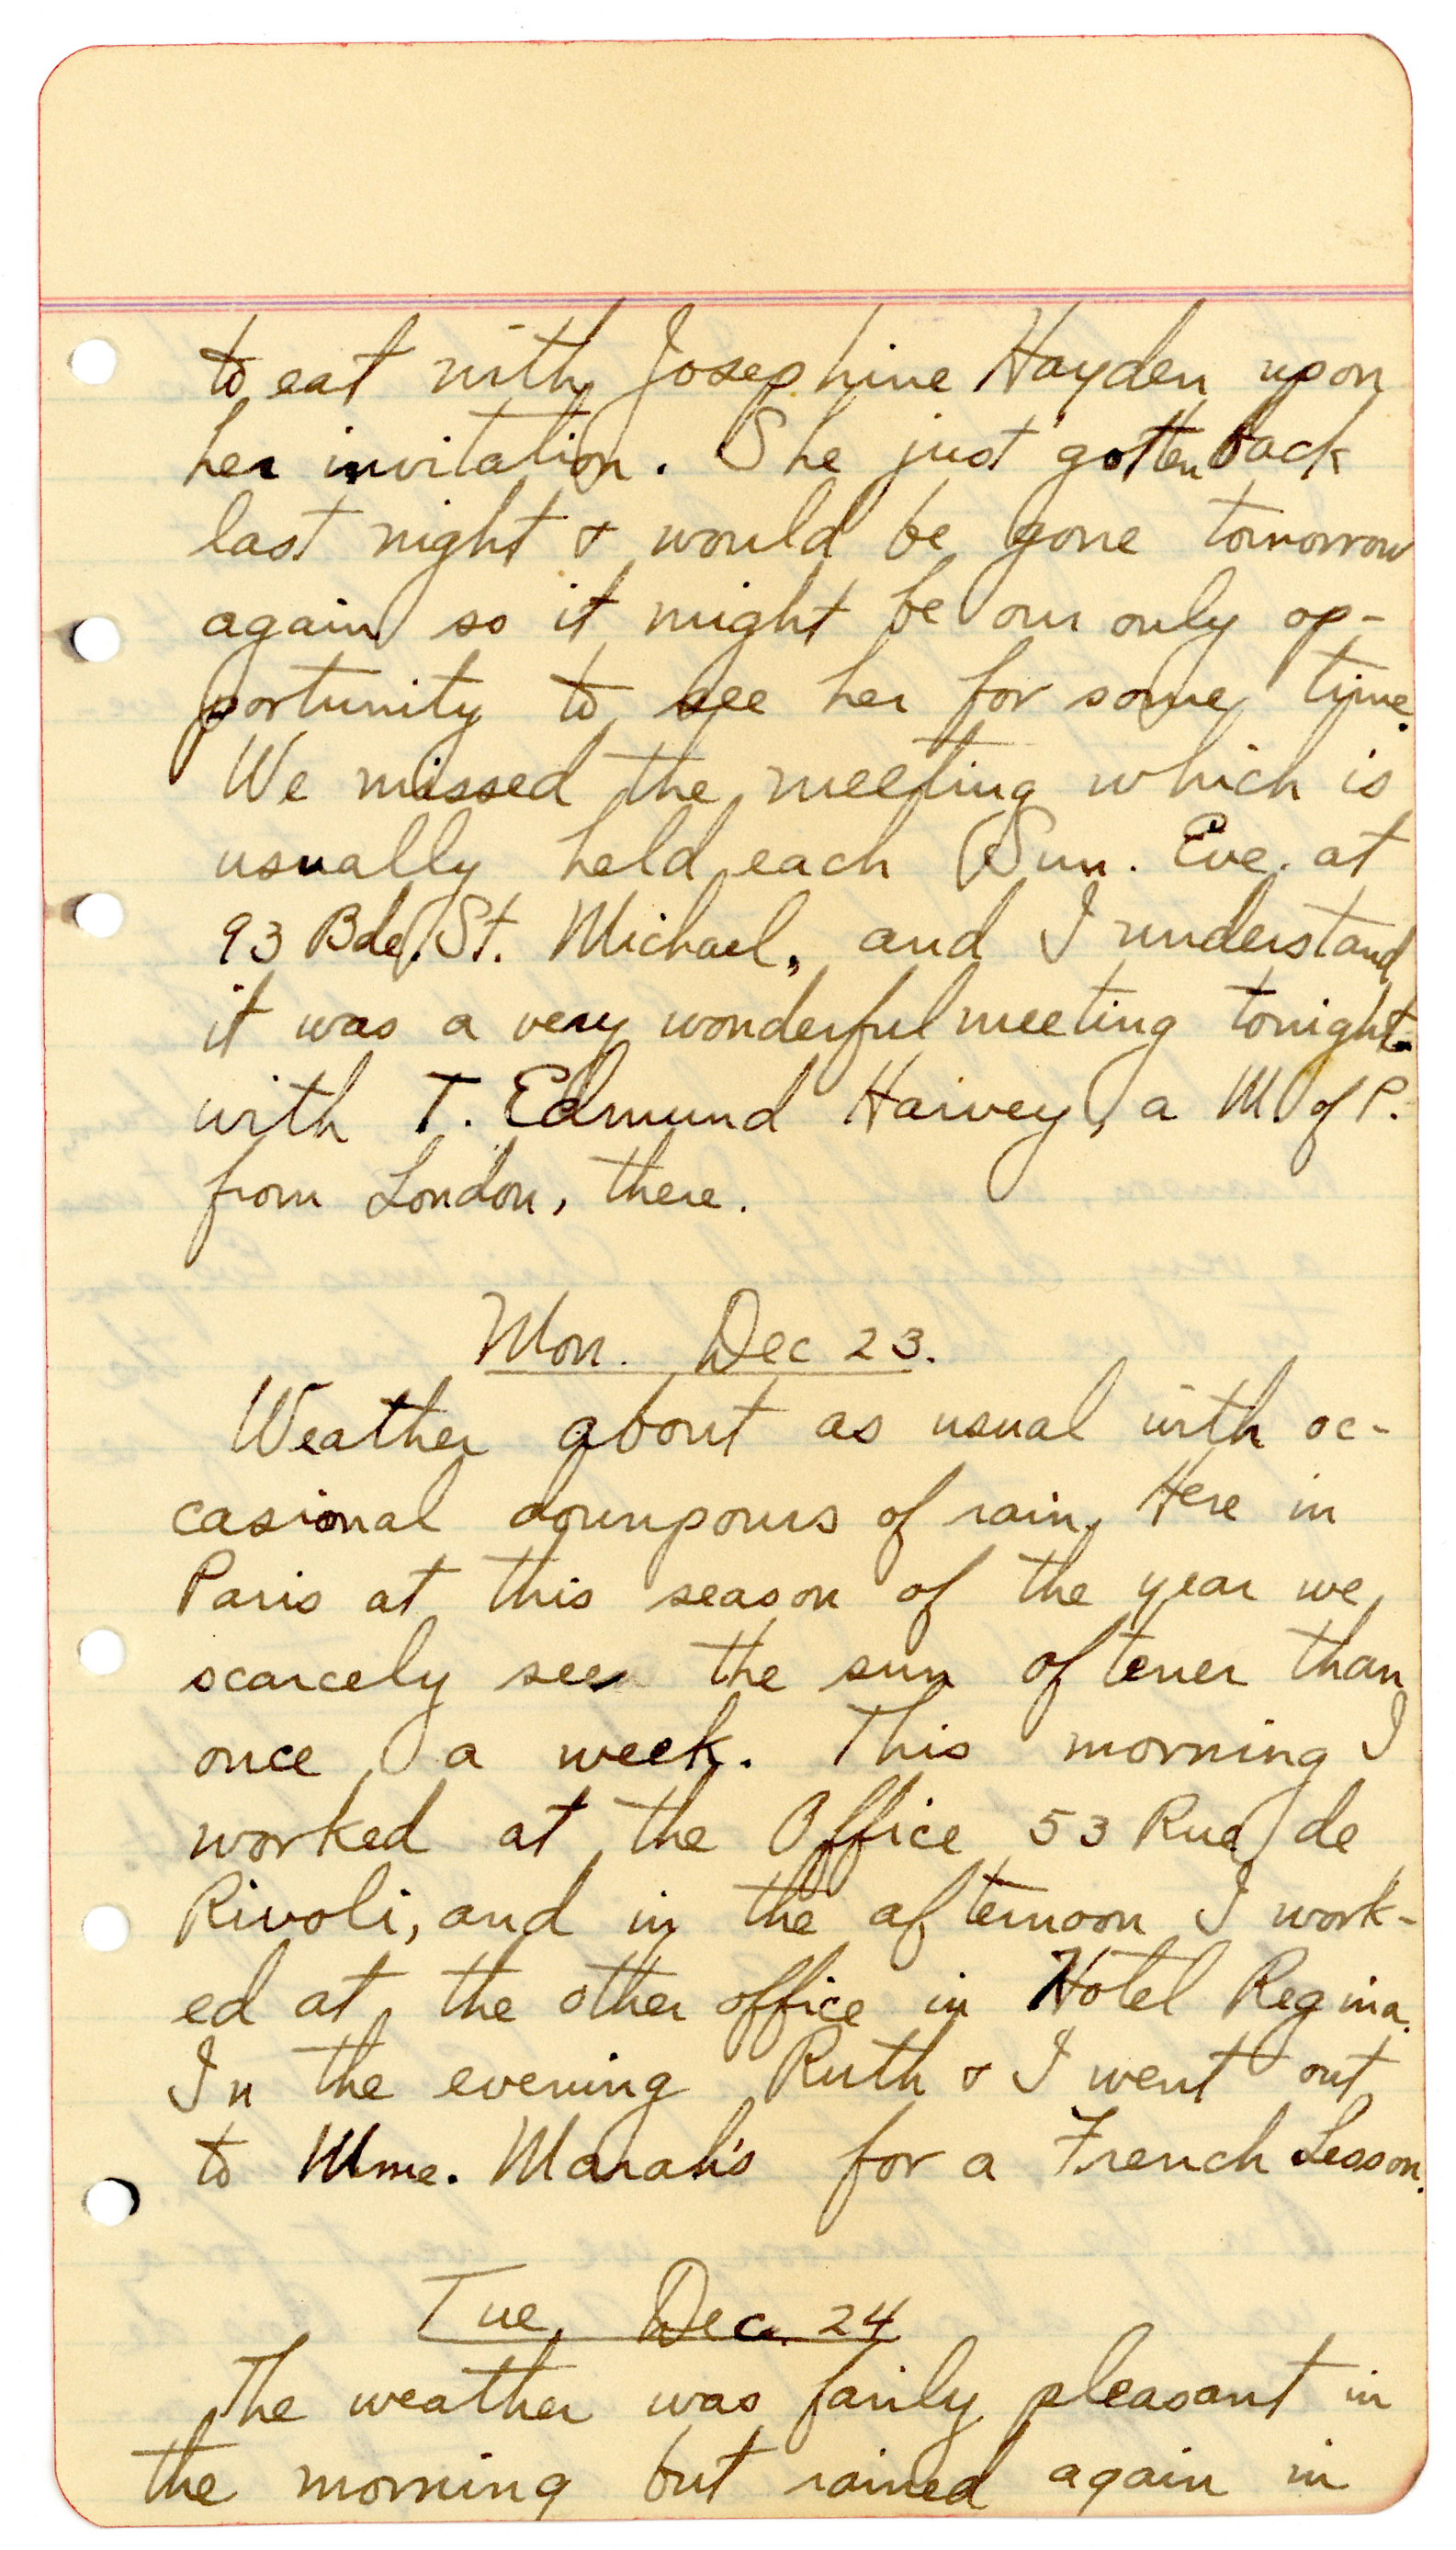 to eat with Josephine Hayden upon
her invitation. She just gotten back
last night & would be gone tomorrow
again so it might be our only op-
portunity to see her for some time.
We missed the meeting which is
usually held each Sun. Eve. at
93 Bde. St. Michael, and I understand
it was a very wonderful meeting tonight
with T. Edmund Harvey, a M. of P.
from London, there.
Mon. Dec 23.
Weather about as usual with oc-
casional downpours of rain. Here in
Paris at this season of the year we
scarcely see the sun oftener than
once a week. This morning I
worked at the Office 53 Rue de
Rivoli, and in the afternoon I work-
ed at the other office in Hotel Regina.
In the evening Ruth & I went out
to Mme. Marah's for a French Lesson.
Tue. Dec. 24
The weather was fairly pleasant in
the morning but rained again in